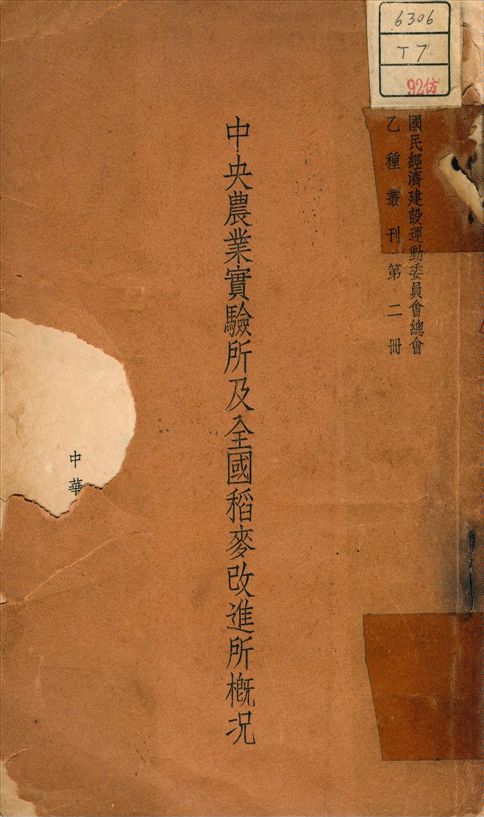 國民經濟建設運動委員會總會
乙種叢刊第二冊
中央農業實驗所及全國稻麥改進所概況
中華
6306
T7
92估